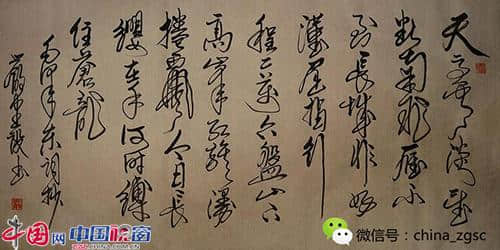 天高云淡望
断南飞雁不
到長城非好
漢屈指行
程二萬六盘山上
高峰红旗漫
捲西风今日長
缨在手何时缚
住蒼龍
中国网 中国视窗
微信号：china_zgsc